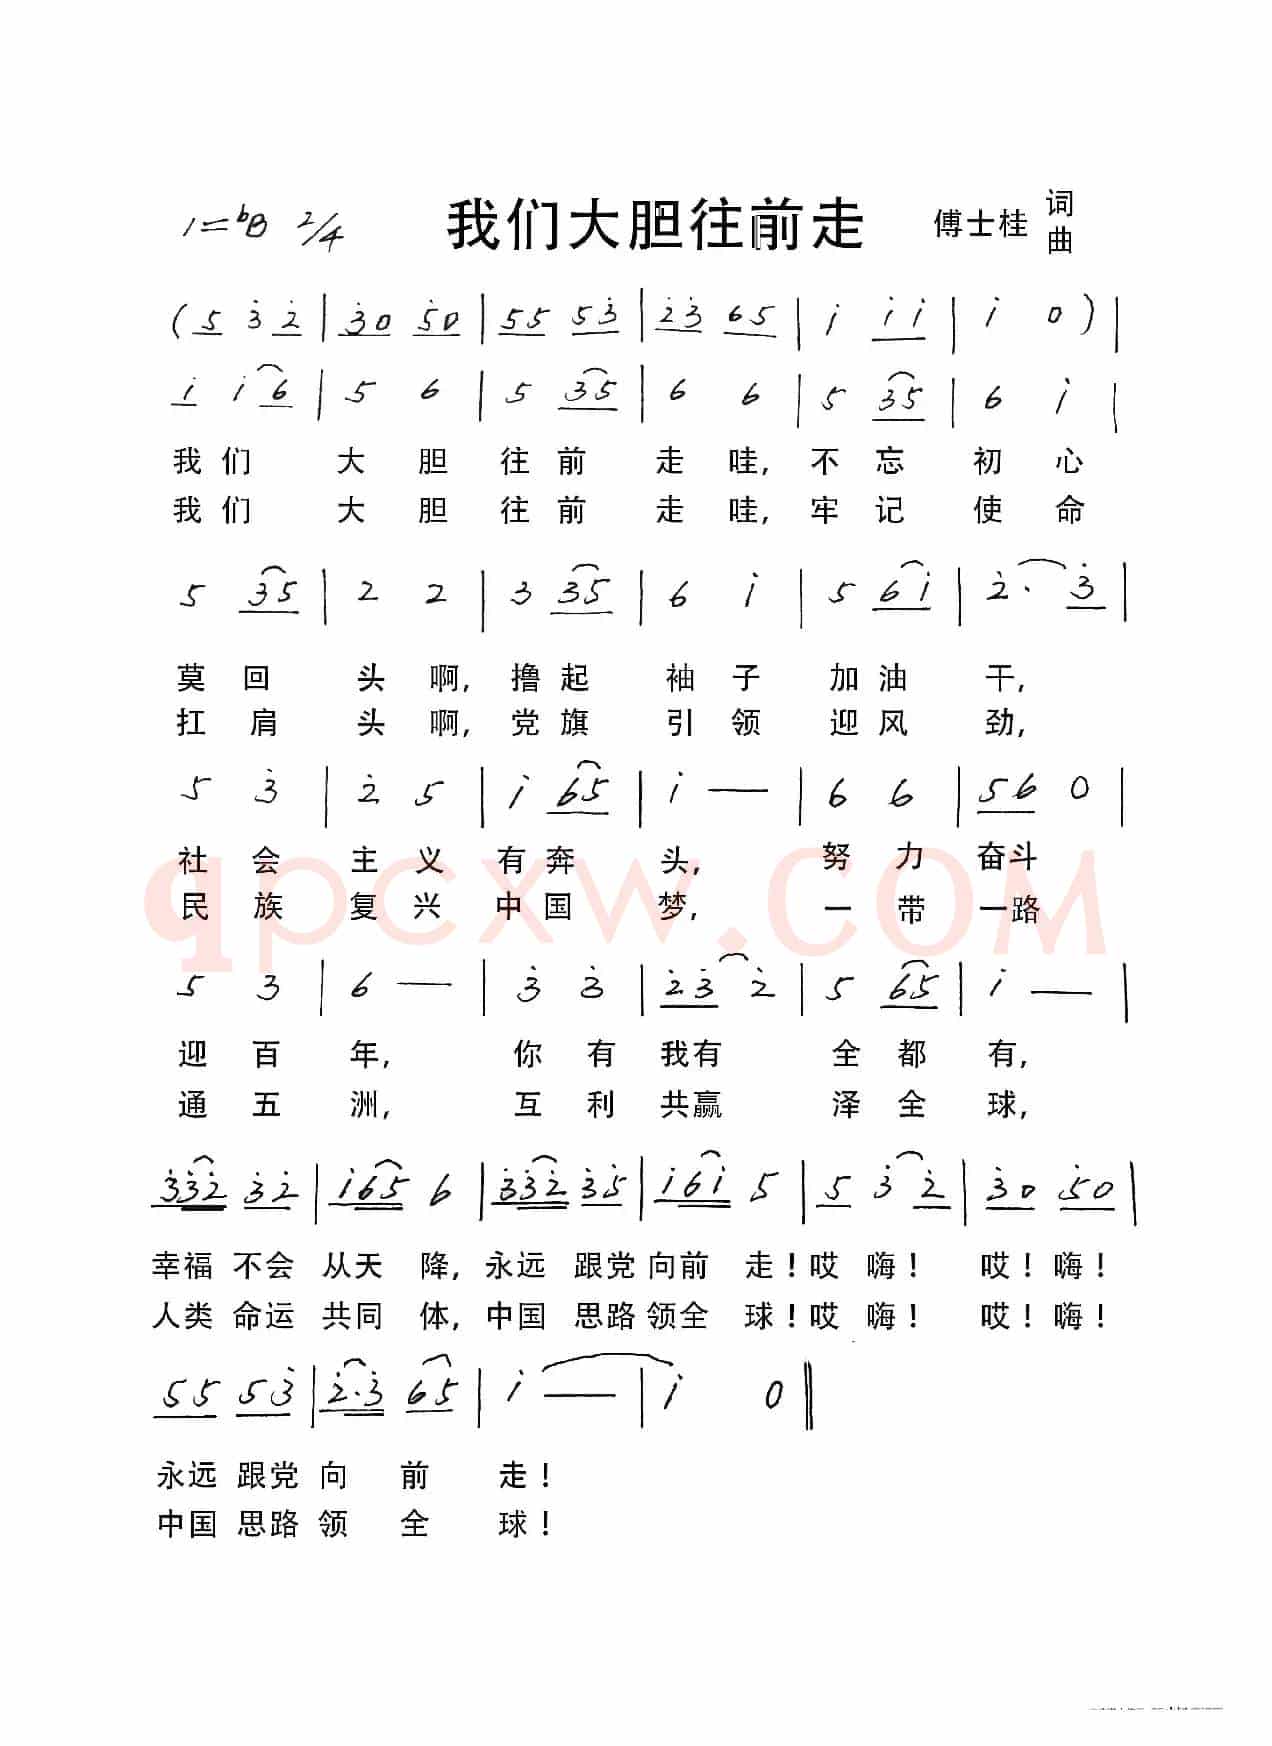 1=bB 2/4 我们大胆往前走 傅士桂 词曲
(5 3 2 | 30 50 | 55 53 | 23 65 | i i i | i 0 ) |
i i 6 | 5 6 | 5 35 | 6 6 | 5 35 | 6 i |
我们 大 胆 往 前 走 哇, 不 忘 初 心
我们 大 胆 往 前 走 哇, 牢 记 使 命
5 35 | 2 2 | 3 35 | 6 i | 5 6i | 2· 3 |
莫 回 头 啊, 撸 起 袖 子 加 油 干,
扛 肩 头 啊, 党 旗 引 领 迎 风 劲,
5 3 | 2 5 | i 65 | i — | 6 6 | 56 0 |
社 会 主 义 有 奔 头, 努 力 奋斗
民 族 复 兴 中 国 梦, 一 带 一路
qpcxw.COM
5 3 | 6 — | 3 3 | 23 2 | 5 65 | i — |
迎 百 年, 你 有 我有 全 都 有,
通 五 洲, 互 利 共赢 泽 全 球,
332 32 | i65 6 | 332 35 | i6i 5 | 5 3 2 | 30 50 |
幸福 不会 从天 降, 永远 跟党 向前 走!哎 嗨! 哎!嗨!
人类 命运 共同 体, 中国 思路 领全 球!哎 嗨! 哎!嗨!
55 53 | 2·3 65 | i — | i 0 ‖
永远 跟党 向 前 走!
中国 思路 领 全 球!